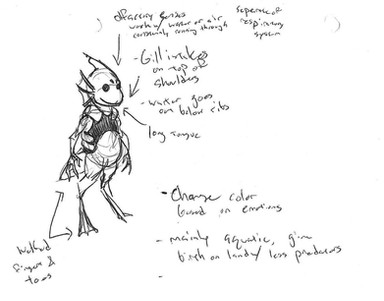 olfactory senses
work w/ water or air
constantly coming through
Separate of
respiratory
system
- Gill intakes
on top of
shoulders
- water goes
out below ribs
long tongue
- Change color
based on emotions
- mainly aquatic, give
birth on land w/ less predators
-
Webbed
fingers &
toes